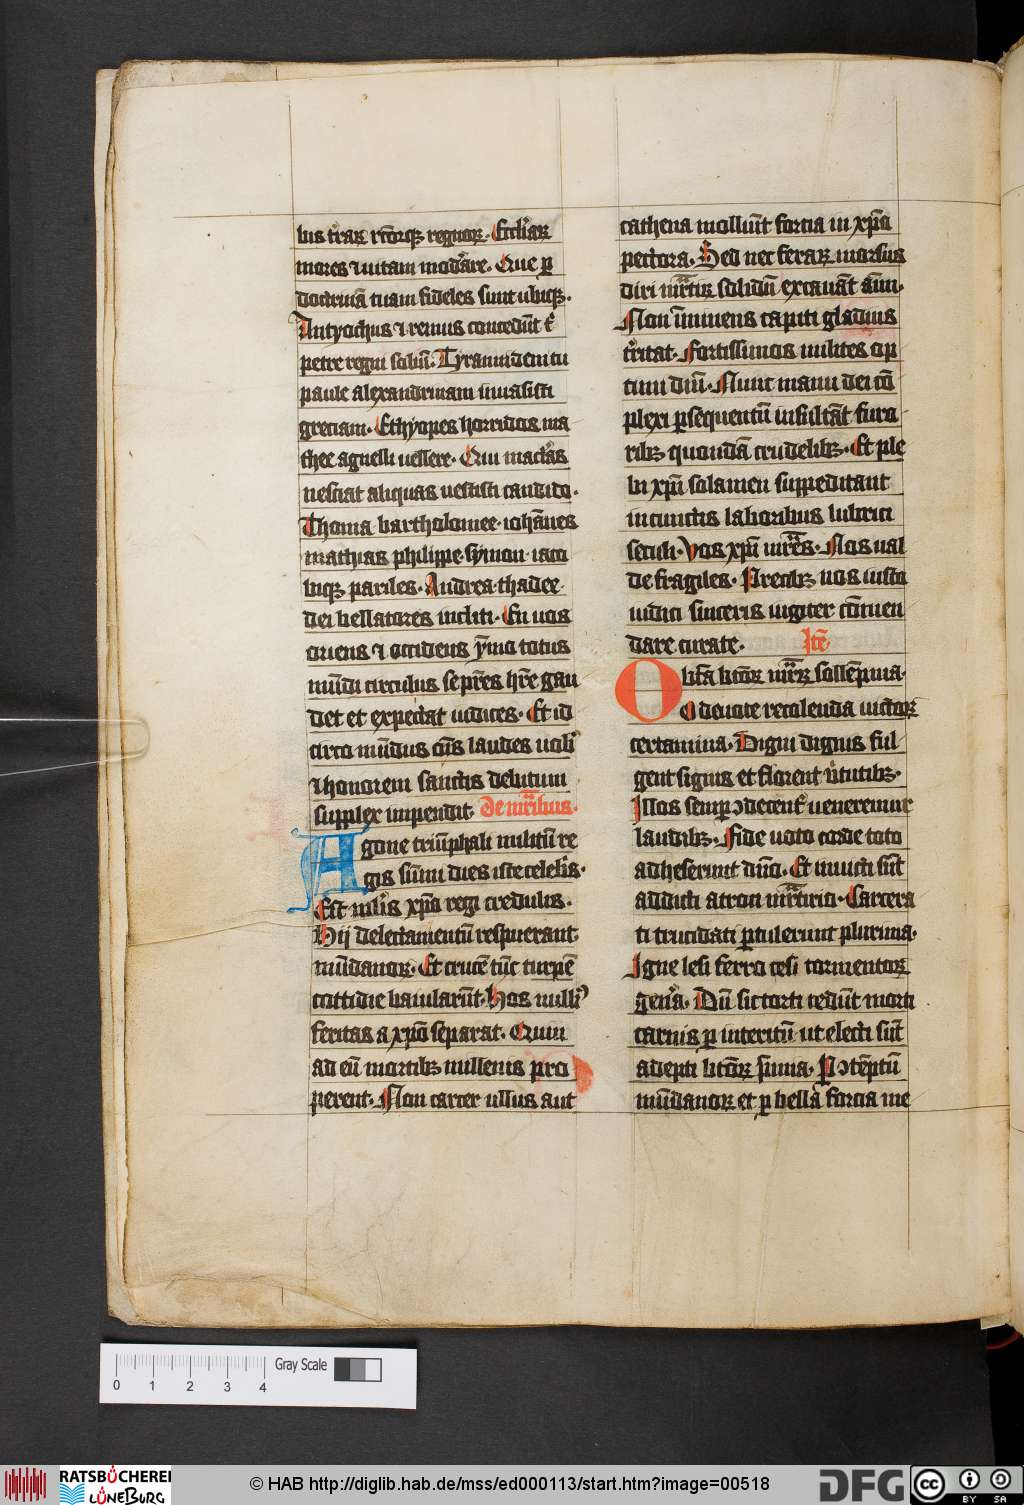 bus t̃raꝝ rectorqꝫ regnoꝝ. Eccl'iaꝝ
mores ⁊ uitam mod'are. Que ꝑ
doctrinã tuam fideles sunt ubiqꝫ.
Antyochus ⁊ remus concedũt t'
petre regni soliũ. Tyrannidem tu
paule alexandrinam inuasisti
greciam. Ethyopes horridos ma
thee agnelli uellere. Qui mac'las
nesciat aliquas uestisti candido.
Thoma bartholomee. iohãnes
mathias philippe symon. iaco
biqꝫ pariles. Andrea thadee.
dei bellatores incliti. En uos
oriens ⁊ occidens ymo totus
mũdi circulus se pr̃es h̃re gau
det et expectat iudices. Et id
circo mũdus om̃s laudes uob'
⁊ honorem sanctis debitum
supplex impendit. de mr̃ibus.
Agone triũphali militũ re
gis sũmi dies iste celeb's.
Est ml'is xp̃o regi credulis.
Hij delectamentũ respuerant
mũdanoꝝ. Et crucẽ tũc turpẽ
cottidie baiularũt. Hos null'
feritas a xp̃o separat. Quin
ad eũ mortibꝫ millenis pro
perent. Non carcer ullus aut
cathena molliũt forcia in xp̃o
pectora. Sed nec feraꝝ morsus
diri mr̃tiꝝ solidũ excauãt aĩm.
Non ĩminens capiti gladius
t'ritat. Fortissimos milites op
timi diũ. Nunc manu dei cõ
plexi ꝑsequentũ insultãt furo
ribꝫ quondã crudelibꝫ. Et ple
bi xp̃i solamen suppeditant
in cunctis laboribus lubrici
seculi. Vos xp̃i mr̃es. Nos ual
de fragiles. Precibꝫ uos iusto
iudici sinceris iugiter cõmen
dare curate. Itẽ
O bt̃a btõꝝ mr̃ꝝ sollẽpnia.
O deuote recolenda uictoꝝ
certamina. Digni dignis ful
gent signis et florent ũtutibꝫ.
Illos semꝑ ↄdecent' ueneremur
laudibꝫ. Fide uoto corde toto
adheserunt dñо. Et inuicti sũt
addicti atroci mr̃tirio. Carcera
ti trucidati ꝑtulerunt plurima.
Igne lesi ferro cesi tormentoꝝ
gen'a. Dũ sic torti cedũt morti
carnis ꝑ interitũ ut electi sũt
adepti btõꝝ p̃mia. P ↄtẽptũ
mũdanoꝝ et ꝑ bella forcia me
Gray Scale
0 1 2 3 4
RATSBÜCHEREI
LÜNEBURG
© HAB http://diglib.hab.de/mss/ed000113/start.htm?image=00518
DFG
cc BY SA